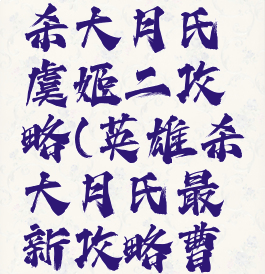 杀大月氏
虞姬二攻
略(英雄杀
大月氏最
新攻略曹